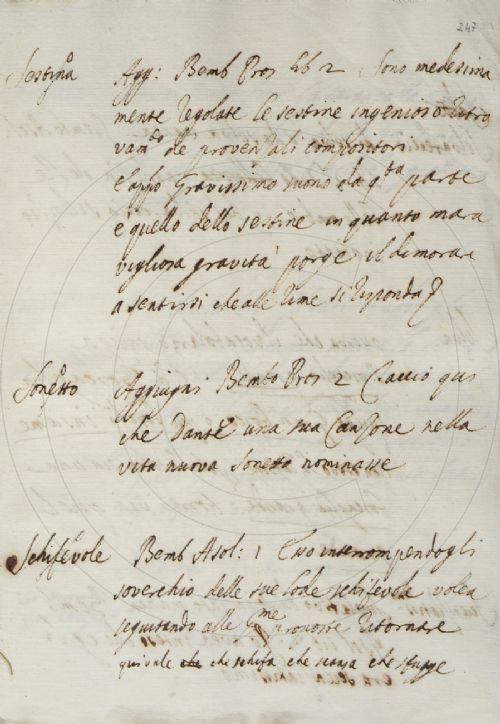 247
Sestina Agg: Bemb Pros lib 2 Sono medesima
mente regolate le sestine ingenioso ritro
vam.to de provenzali compositori
E appo Gravissimo suono da q.ta parte
è quello delle sestine in quanto mara
vigliosa gravità porge il dimorare
a sentirsi che alle rime si risponda
Sonetto Aggiugni Bembo Pros 2 Cacciò qui
che Dante una sua Canzone nella
vita nuova Sonetto nominasse
Schifevole Bemb Asol: 1 Esso interrompendogli
soverchio delle sue lode schifevole volea
seguitando alle p.me proposte ritornare
qui vale che schifa che scansa che sfugge